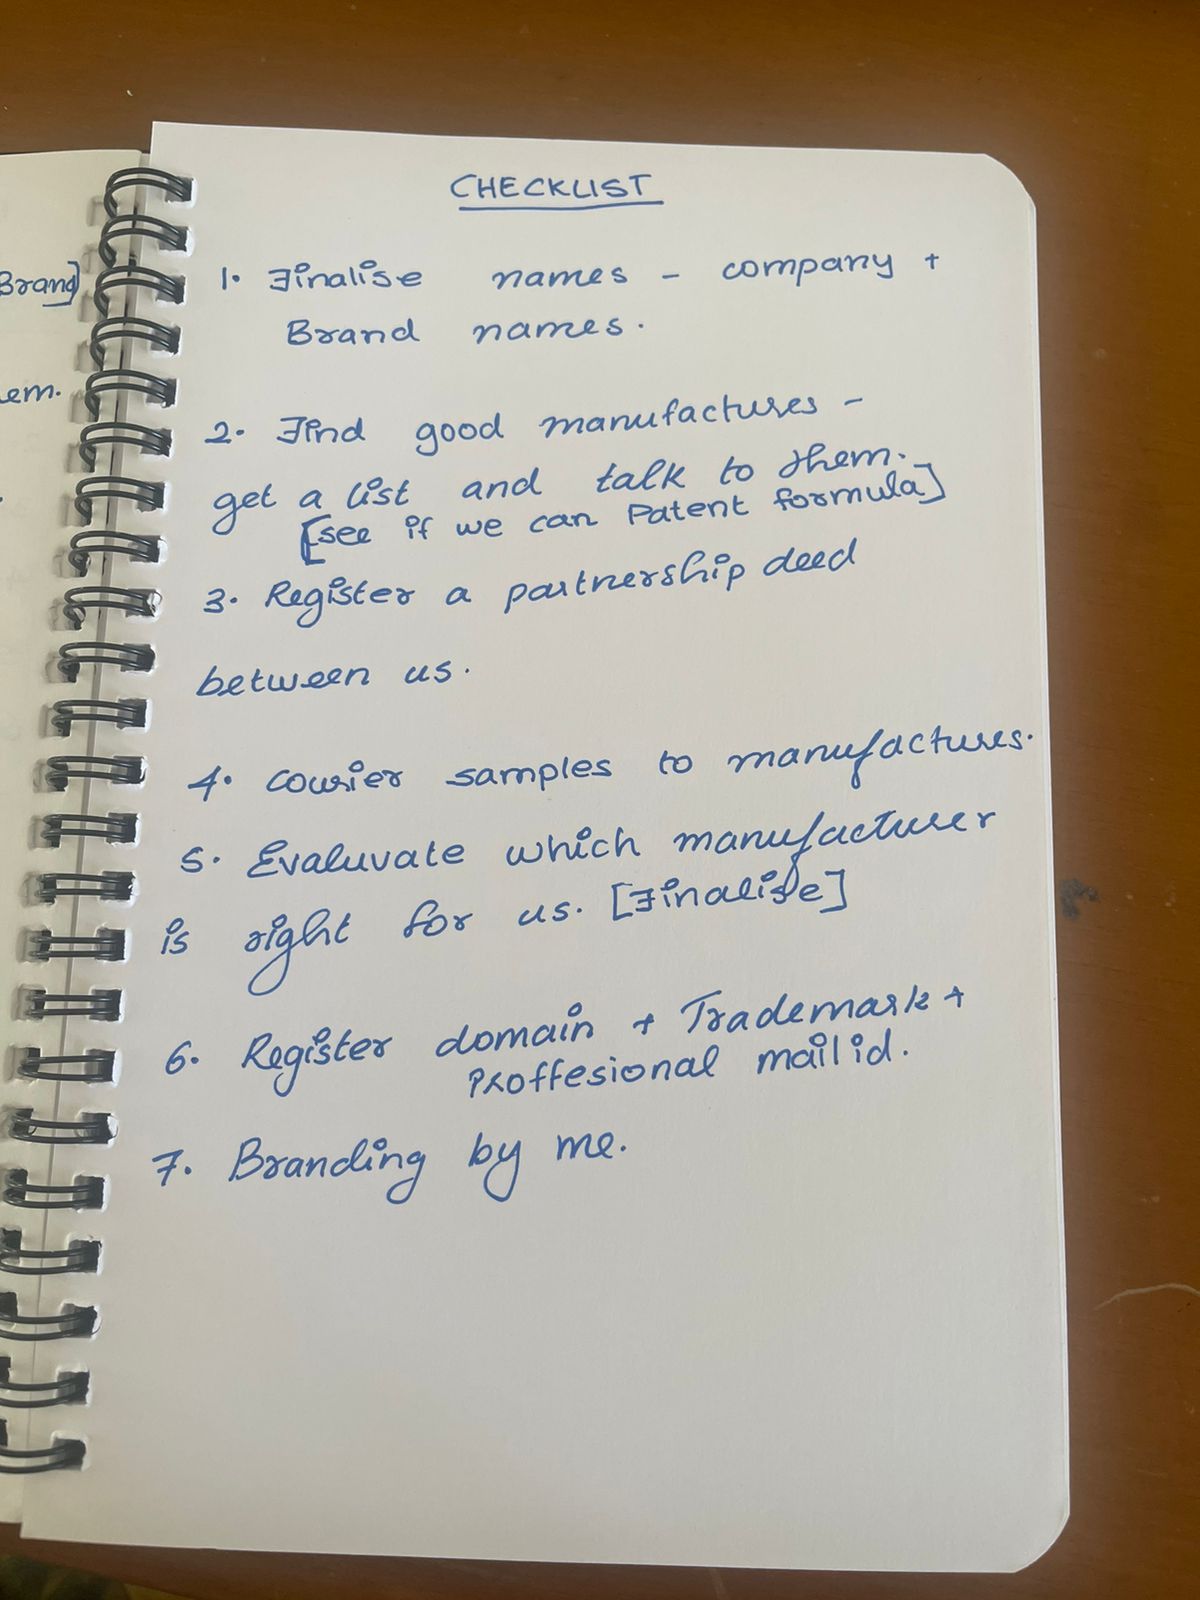 Brand]
em.
CHECKLIST
1. Finalise names - company +
Brand names.
2. Find good manufactures -
get a list and talk to them.
[see if we can Patent formula]
3. Register a partnership deed
between us.
4. Courier samples to manufactures.
5. Evaluvate which manufacturer
is right for us. [Finalise]
6. Register domain + Trademark +
Proffesional mail id.
7. Branding by me.